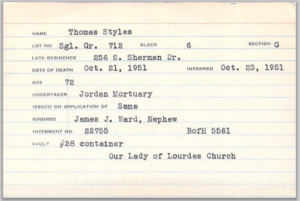 NAME Thomas Styles
LOT NO. Sgl. Gr. 712 BLOCK 6 SECTION G
LATE RESIDENCE 256 S. Sherman Dr.
DATE OF DEATH Oct. 21, 1951 INTERRED Oct. 23, 1951
AGE 72
UNDERTAKER Jordan Mortuary
ISSUED ON APPLICATION OF Same
KINDRED James J. Ward, Nephew
INTERMENT NO 22755 BofH 5561
VAULT #28 container
Our Lady of Lourdes Church